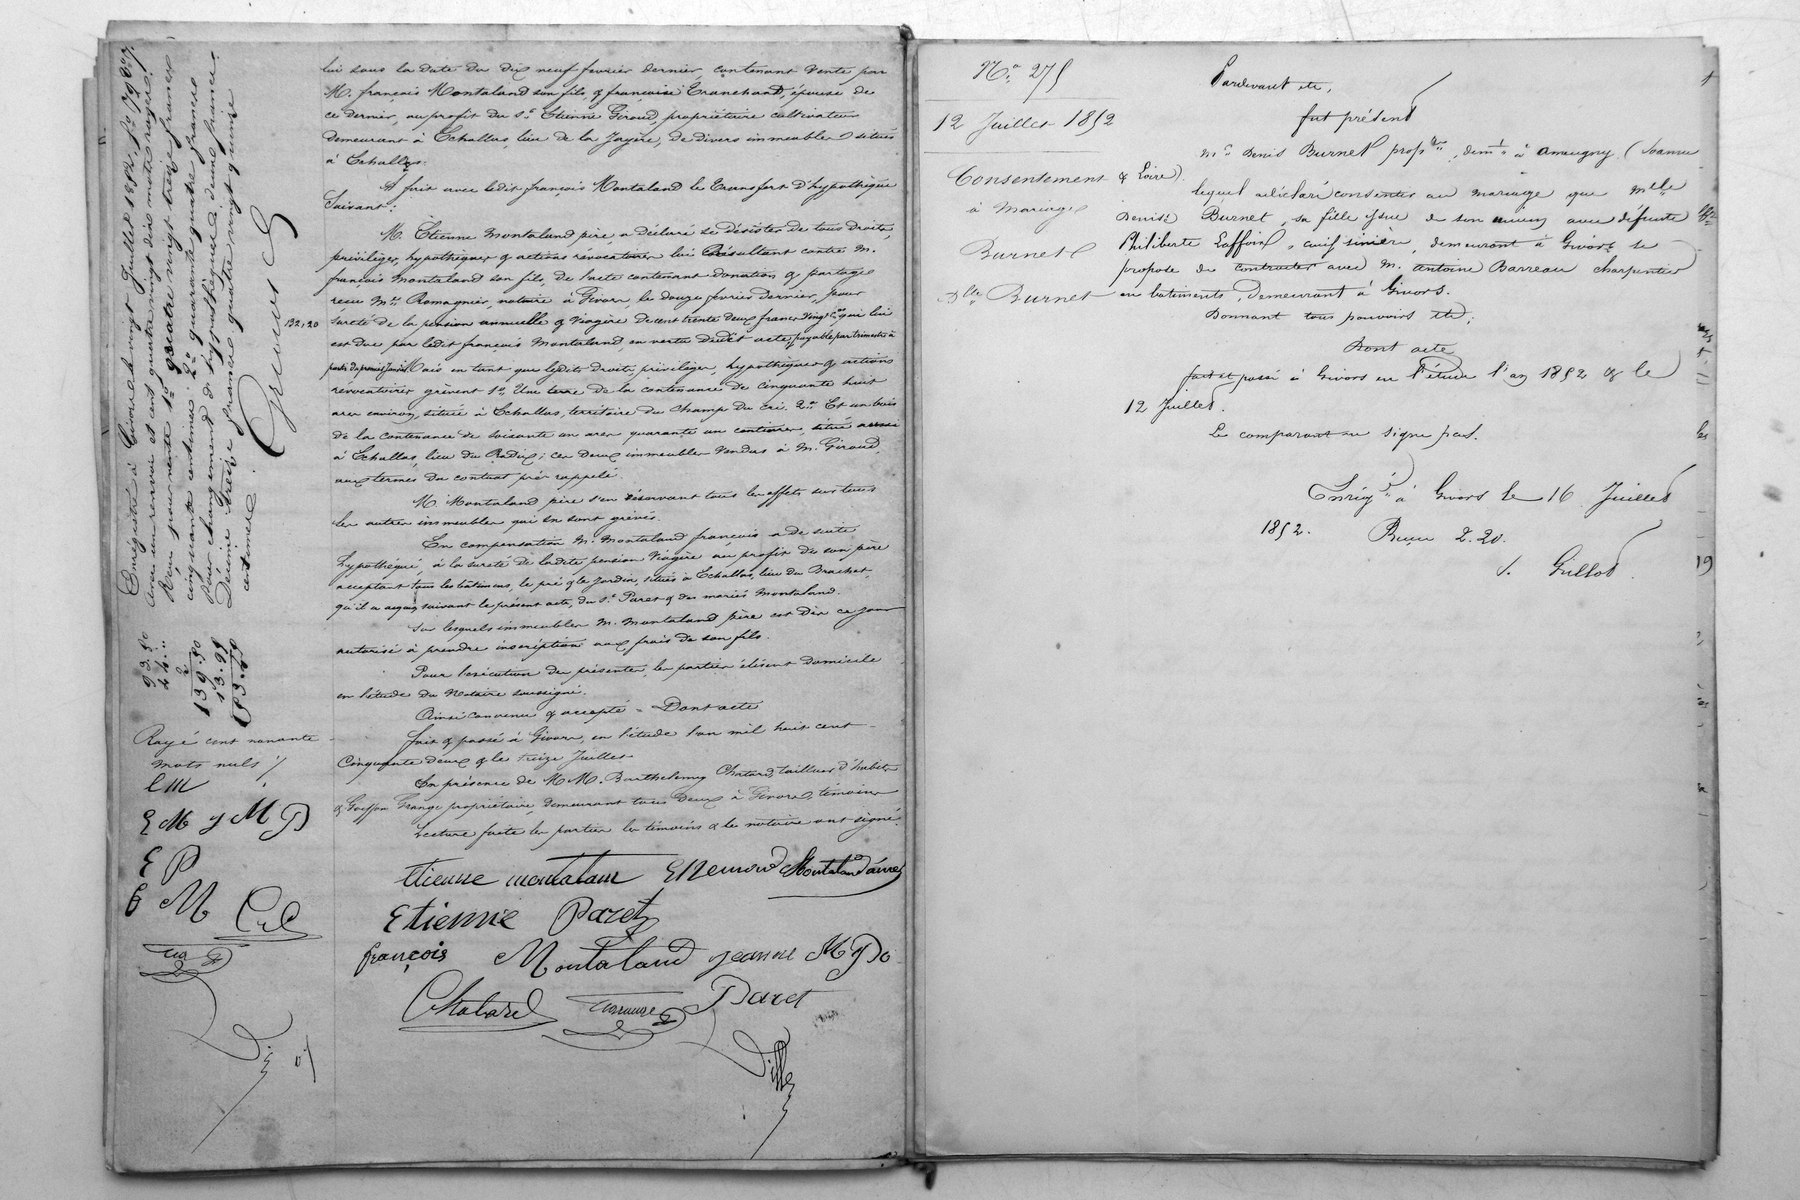 lui sous la date du dix neuf fevrier dernier, contenant vente par
M. françois Montaland son fils, & françoise Tranchand, épouse de
ce dernier, au profit du s.r Etienne Giroud, propriétaire cultivateur
demeurant à Echallas, lieu de la Jayère, de divers immeubles situés
à Echallas.
A fait avec ledit françois Montaland le transfert d'hypothèque
Suivant:
M. Etienne Montaland père, a déclaré se désister de tous droits,
privilèges, hypothèques & actions révocatoires lui Résultant contre M.
françois Montaland son fils, de l'acte contenant donation & partage
reçu M.e Romagnier, notaire à Givors, le douze fevrier dernier, pour
sureté de la pension annuelle & Viagère de cent trente deux francs vingt c.es qui lui
132,20
est due par ledit françois Montaland, en vertu dudit acte, payable par trimestre à
partir du premier Janvier Mais en tant que lesdits droits, privilèges, hypothèques & actions
révocatoires grèvent 1.o Une terre de la contenance de cinquante huit
ares environ, située à Echallas, territoire du Champ du cri. 2.o Et un bois
de la contenance de soixante un ares quarante un centiares, situé aussi
à Echallas, lieu du Radix; ces deux immeubles vendus à M. Giroud,
aux termes du contrat près rappelé.
M. Montaland père s'en réservant tous les effets sur tous
les autres immeubles qui en sont grévés.
En compensation M. Montaland françois a de suite
hypothéqué, à la sureté de ladite pension Viagère au profit de son père
acceptant tous les bâtiments, le pré & le Jardin, situés à Echallas, lieu du Brachet,
qu'il a acquis suivant le présent acte, du s.r Paret & des mariés Montaland.
Sur lesquels immeubles M. Montaland père est dès ce jour
autorisé à prendre inscription aux frais de son fils.
Pour l'exécution des présentes, les parties élisent domicile
en l'étude du Notaire soussigné.
Ainsi convenu & accepté = Dont acte
fait & passé à Givors, en l'étude l'an mil huit cent
Cinquante deux & le treize Juillet
En présence de MM. Barthelemy Chatard, tailleur d'habits
& Grange propriétaire, demeurant tous deux à Givors, témoins
Lecture faite les parties les témoins & le notaire ont signé.
Etienne montaland Montaland
Etienne Paret
françois Montaland jeanne
Paret
Enregistré à Givors le vingt Juillet 1852. f.o 79
Reçu pour vente 1.o quatre vingt treize francs
cinquante centimes 2.o quarante quatre francs
pour changement d'hypothèque deux francs
Décime Treize francs quatre vingt quinze
centimes.
93.50
44..
2
139.50
13.95
Rayé cent nonante
mots nuls
EM
E M J M P
E P
F M
N.o 275
12 Juillet 1852
Consentement
à Mariage
Burnet
à D.lle Burnet
Pardevant etc,
fut présent
M.r Denis Burnet prop.re, dem.t à Ameugny (Saone
& Loire).
lequel a déclaré consentir au mariage que M.lle
Denise Burnet, sa fille issue de son union avec défunte
Philiberte Laffoin, cuisinière, demeurant à Givors se
propose de contracter avec M. Antoine Barreau charpentier
en batiments, demeurant à Givors.
Donnant tous pouvoirs etc,
Dont acte
fait et passé à Givors en l'étude l'an 1852 & le
12 Juillet.
Le comparant ne signe pas.
Enreg.é à Givors le 16 Juillet
1852. Reçu 2.20.
S. Guillot